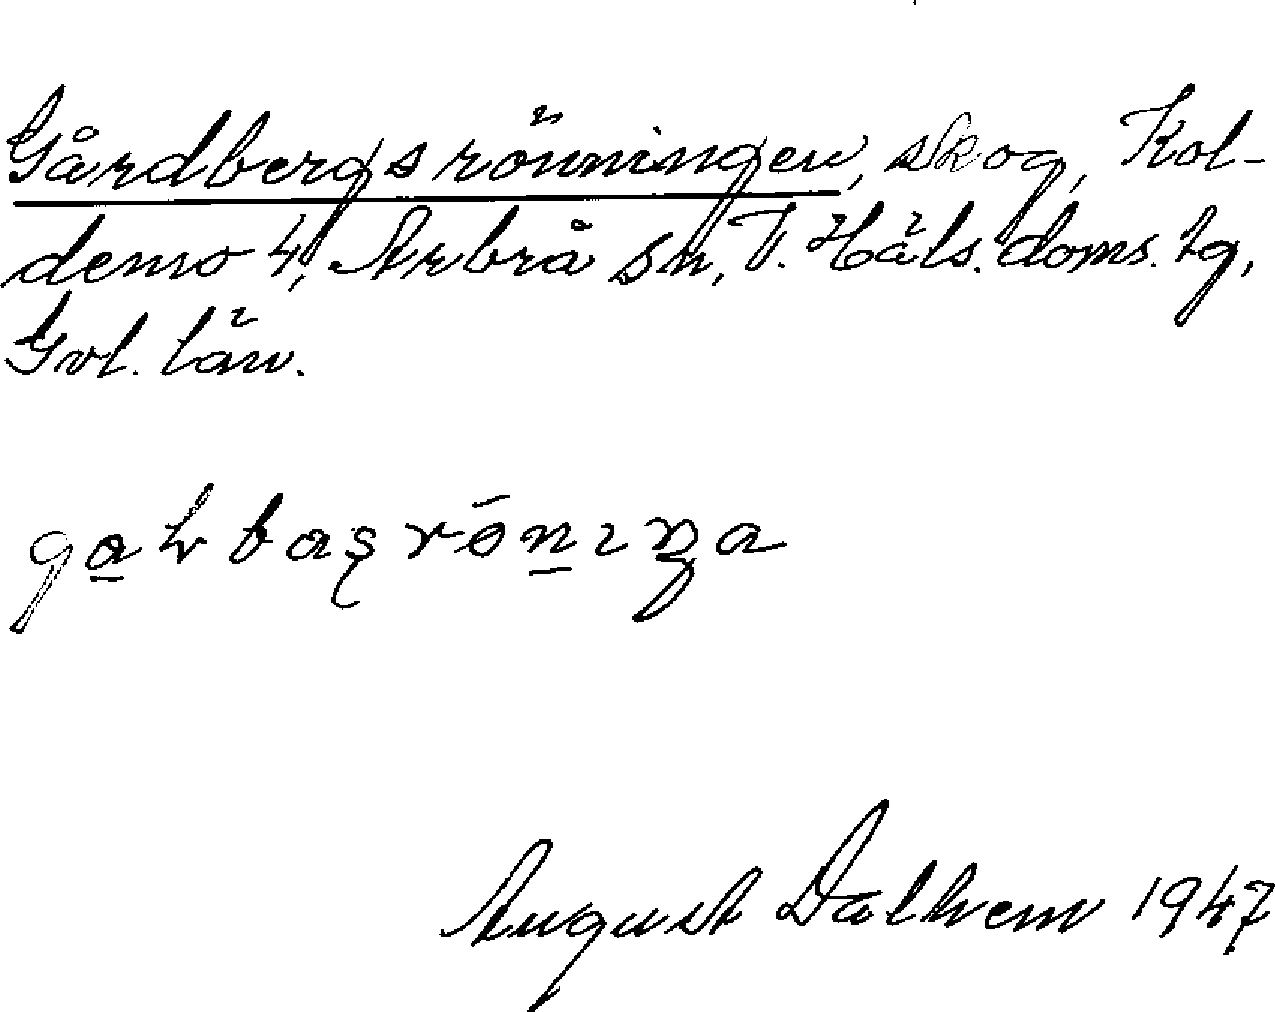 Gårdbergsrönningen, skog, Kol-
demo 4, Arbrå sn, V. Häls. doms. tg,
Gvl. län.
August Dalhem 1947